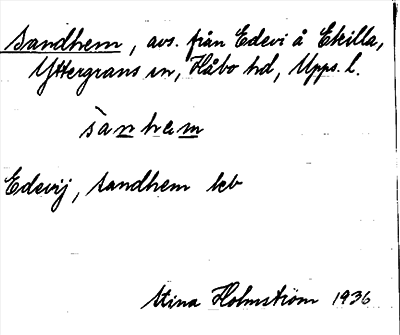 Sandhem, avs. från Edevi å Ekilla,
Yttergrans sn, Håbo hd, Upps. l.
sànhæm
Edevij, Sandhem keb
Stina Holmström 1936